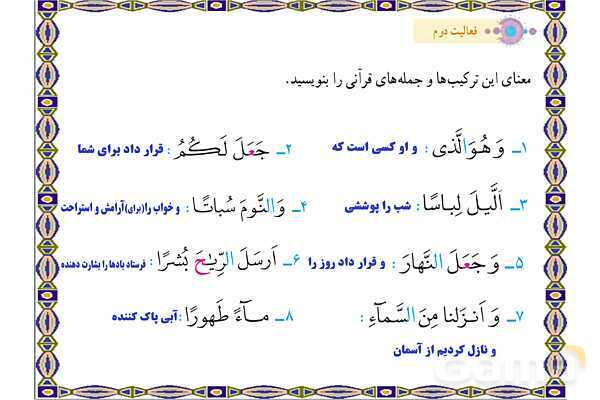 فعالیت دوم
معنای این ترکیب‌ها و جمله‌های قرآنی را بنویسید.
۱ـ وَ هُوَ الَّذی : و او کسی است که
۲ـ جَعَلَ لَکُمُ : قرار داد برای شما
۳ـ اَلَّیلَ لِباسًا : شب را پوششی
۴ـ وَ النَّومَ سُباتًا : و خواب را(برای)آرامش و استراحت
۵ـ وَ جَعَلَ النَّهارَ : و قرار داد روز را
۶ـ اَرسَلَ الرِّیٰحَ بُشرًا : فرستاد بادها را بشارت دهنده
۷ـ وَ اَنزَلنا مِنَ السَّمآءِ :
و نازل کردیم از آسمان
۸ـ مـآءً طَهورًا : آبی پاک کننده
Gama